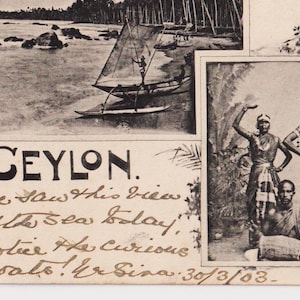 CEYLON.
saw this view
the sea today;
the curious
boats! 30/3/03.